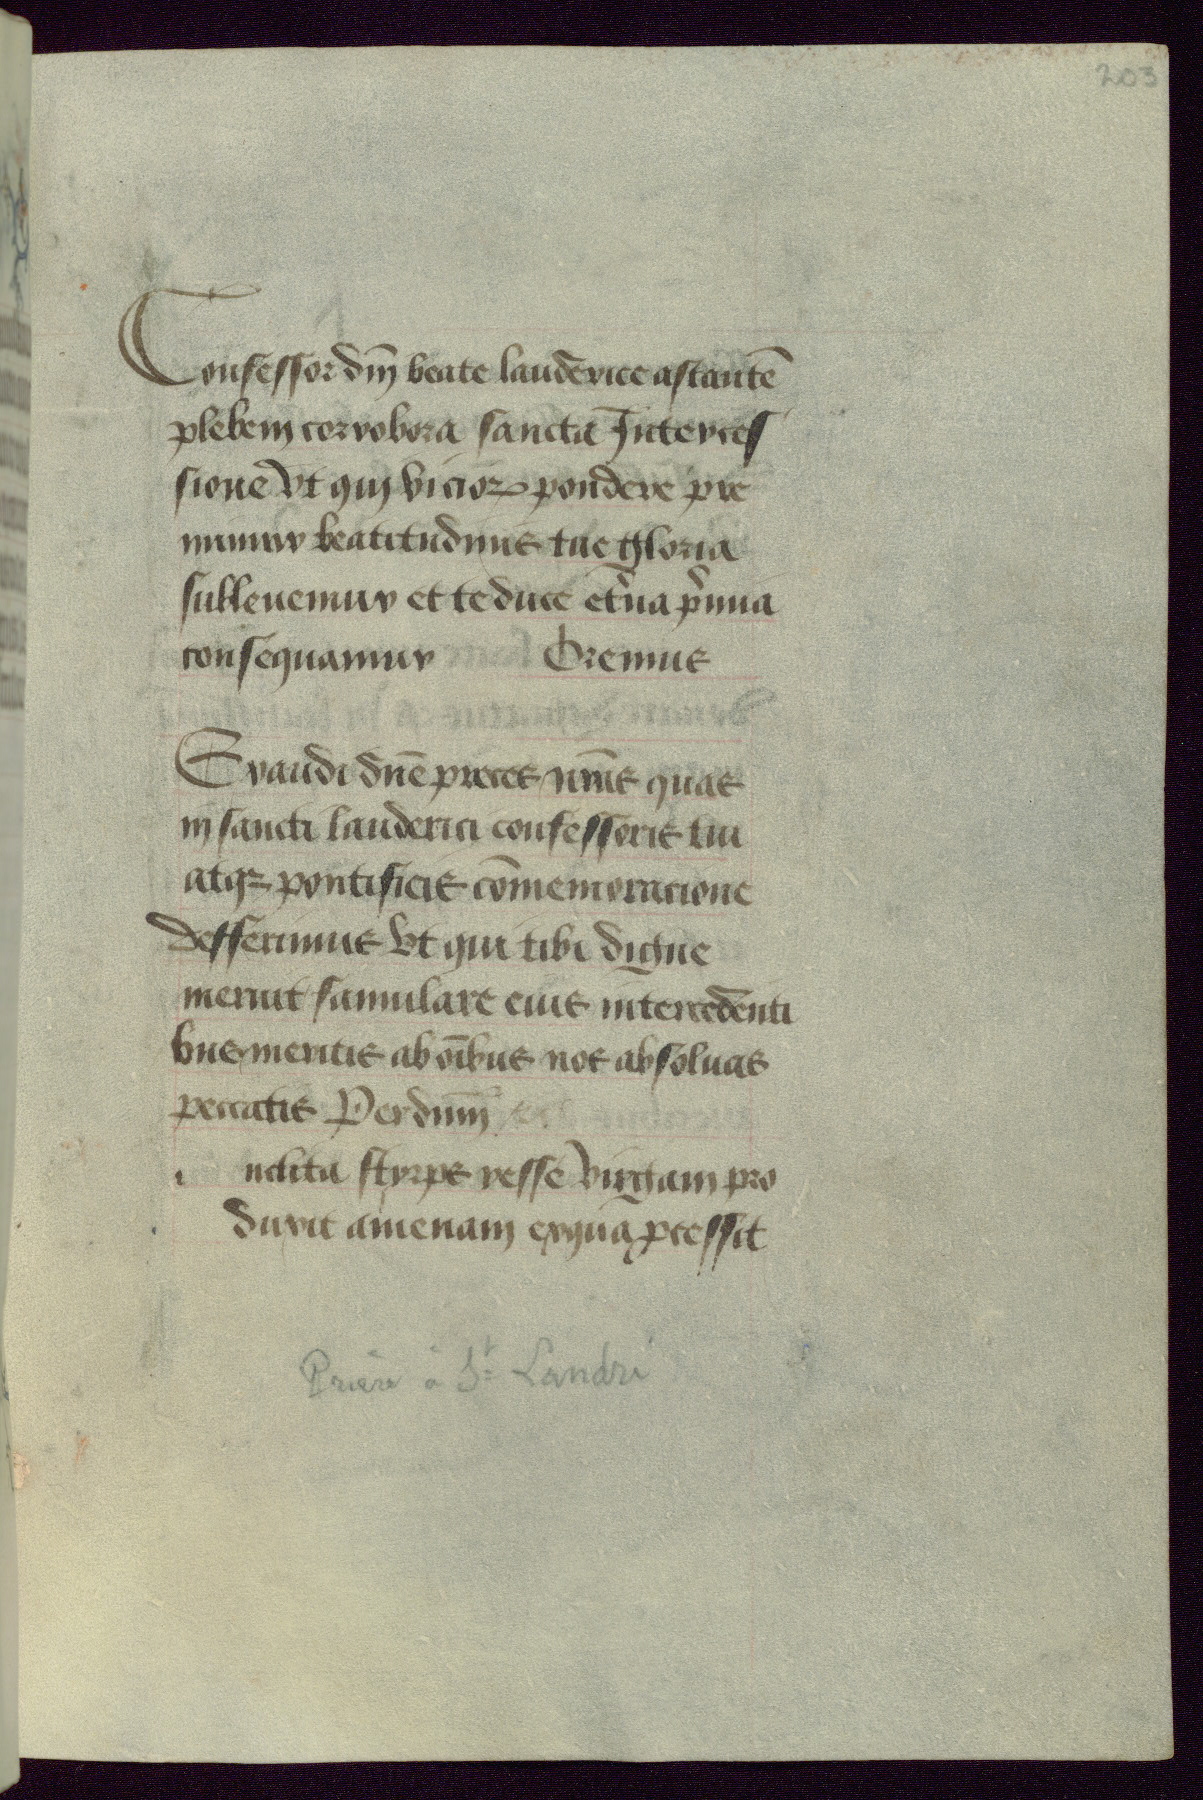 203
Confessor dm̄ beate landerice astantē
plebem corrobora sancta Interces
sione Vt qui vicioꝝ pondere pre
mimur beatitudinis tue gloria
subleuemur et te duce etn̄a p̄mia
consequamur Oremus
Exaudi dnē preces nr̄as quas
in sancti landerici confessoris tui
atqꝫ pontificis cōmemoracione
defferimus Vt qui tibi digne
meruit famulare eius intercedēnti
bus meritis ab oībus nos absoluas
peccatis Per dnm̄
i nclita styrps yesse Virgam pro
duxit amenam exqua ꝓcessit
Prière à St Landri